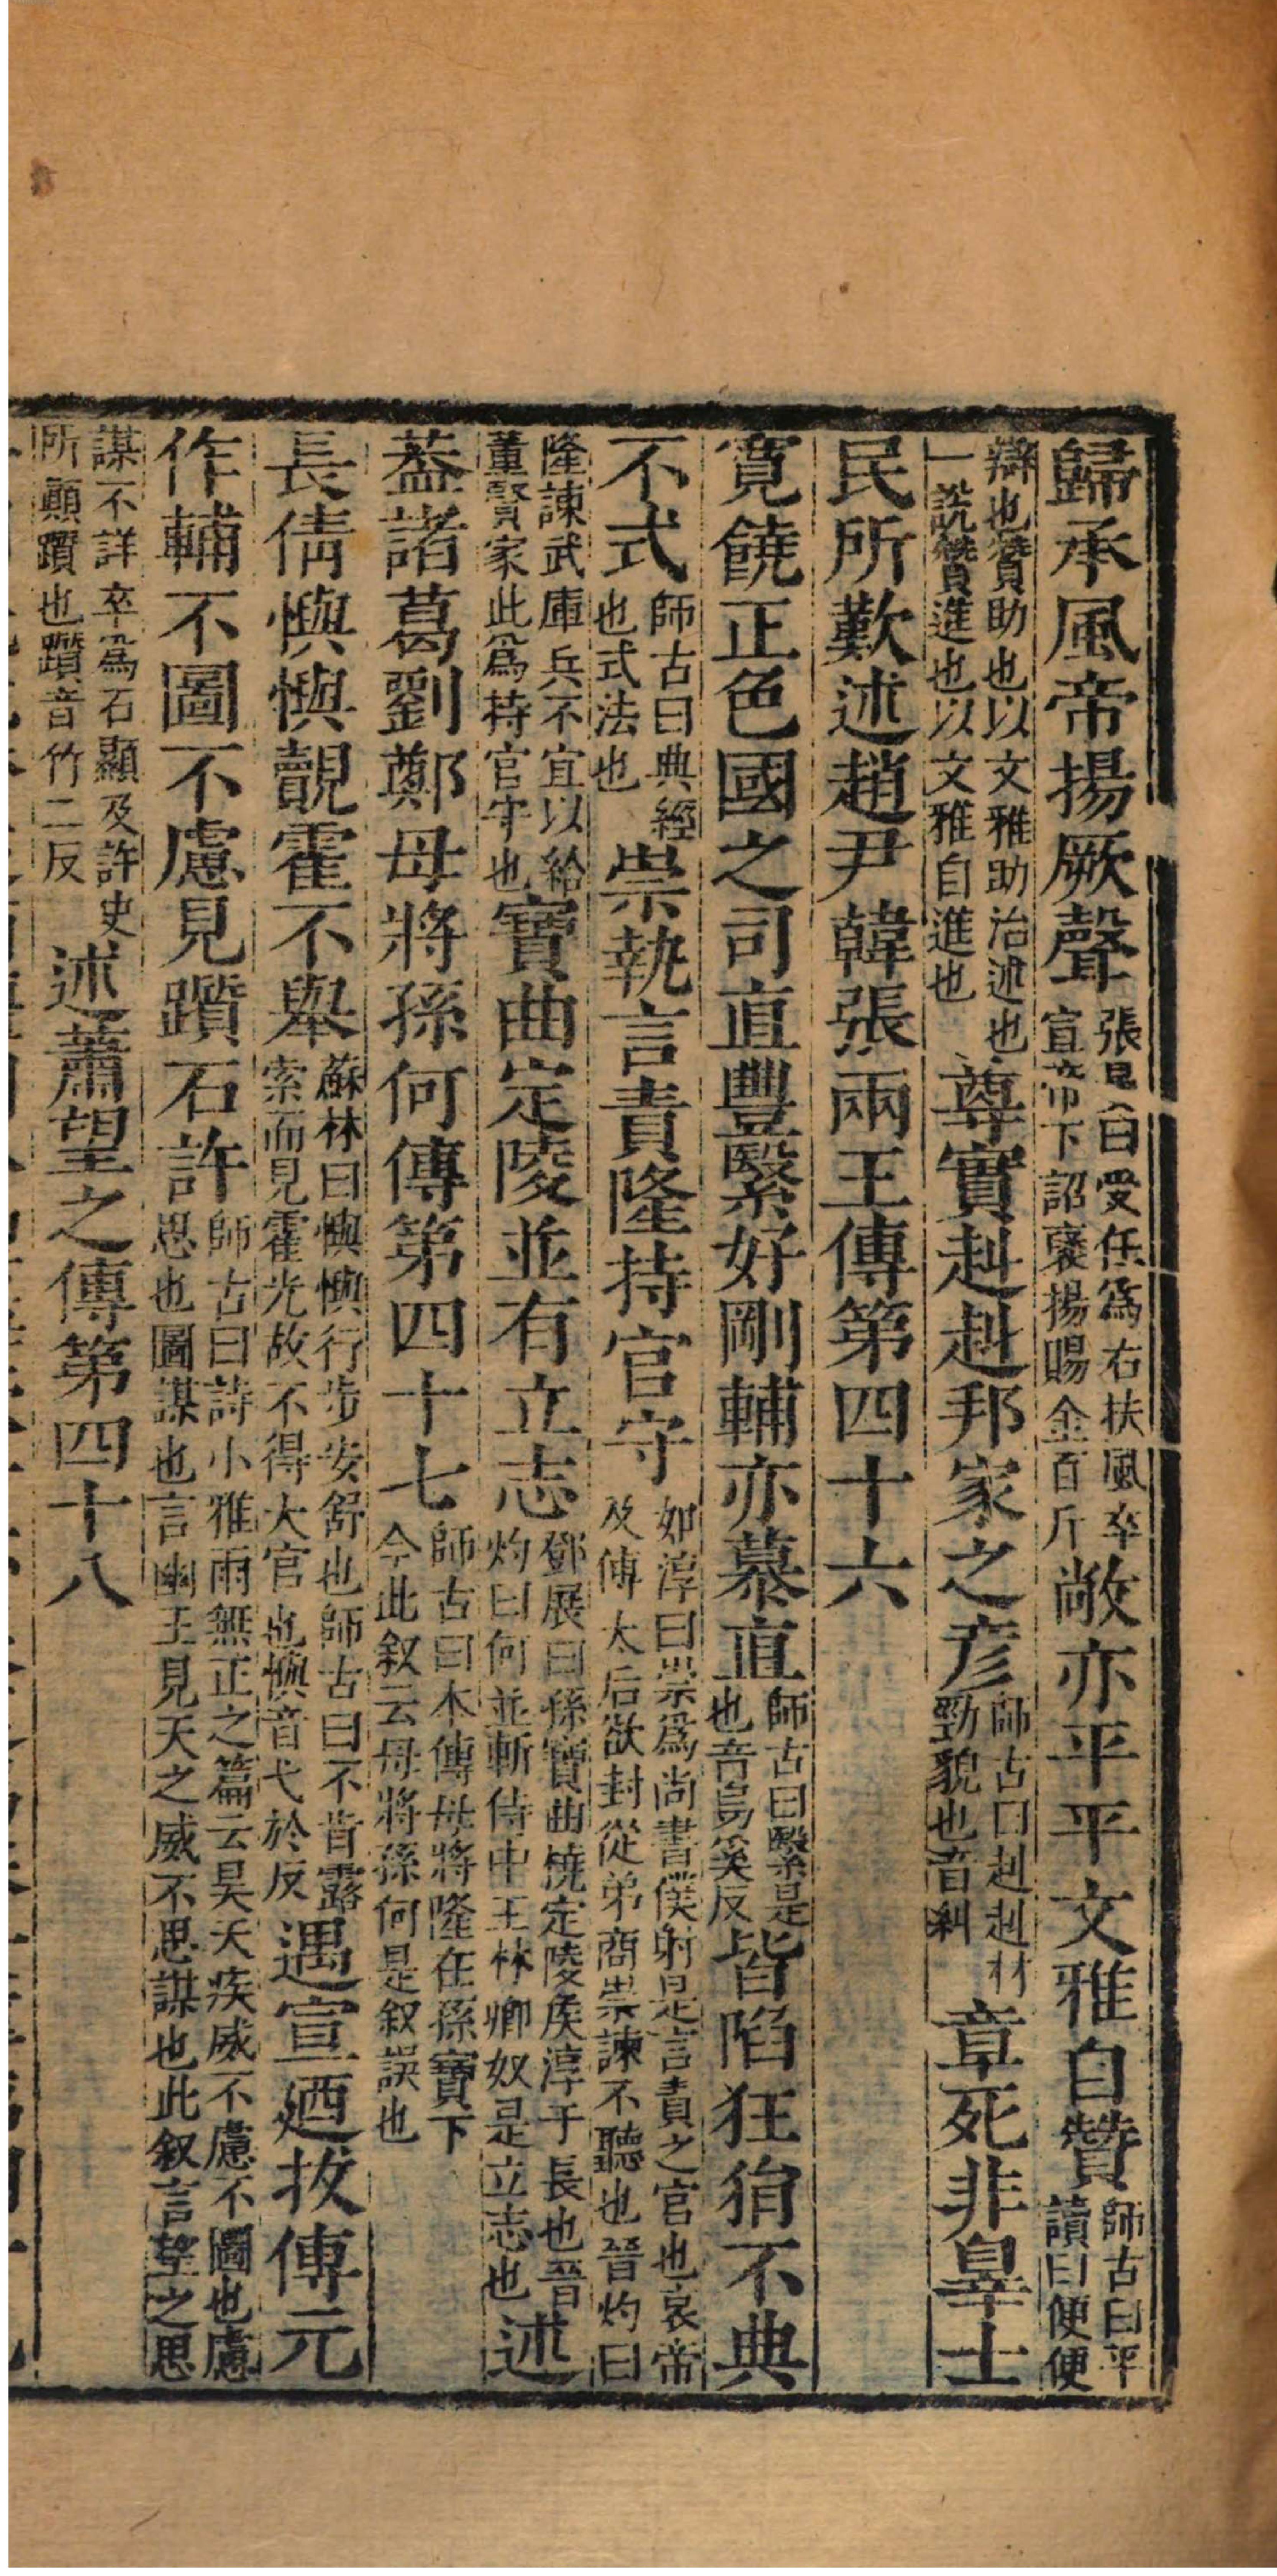 歸承風帝揚厥聲張晏曰受任爲右扶風卒宣帝下詔襃揚賜金百斤敞亦平平文雅自贊師古曰平讀曰便便
辯也贊助也以文雅助治述也一說贊進也以文雅自進也尊實赳赳邦家之彦師古曰赳赳材勁貌也音糾章死非辠士
民所歎述趙尹韓張兩王傳第四十六
寬饒正色國之司直豐繄好剛輔亦慕直師古曰繄是也音烏奚反皆陷狂狷不典
不式師古曰典經也式法也崇執言責隆持官守如淳曰崇爲尚書僕射是言責之官也哀帝及傅太后欲封從弟商崇諫不聽也晉灼曰
隆諫武庫兵不宜以給董賢家此爲持官守也寶曲定陵並有立志鄧展曰孫寶曲橈定陵侯淳于長也晉灼曰何並斬侍中王林卿奴是立志也述
蓋諸葛劉鄭毋將孫何傳第四十七師古曰本傳毋將隆在孫寶下今此叙云毋將孫何是叙誤也
長倩懙懙覿霍不舉蘇林曰懙懙行步安舒也師古曰不肯露索而見霍光故不得大官也懙音弋於反遇宣廼拔傅元
作輔不圖不慮見躓石許師古曰詩小雅雨無正之篇云昊天疾威不慮不圖也慮思也圖謀也言幽王見天之威不思謀也此叙言望之思
謀不詳卒爲石顯及許史所顛躓也躓音竹二反述蕭望之傳第四十八